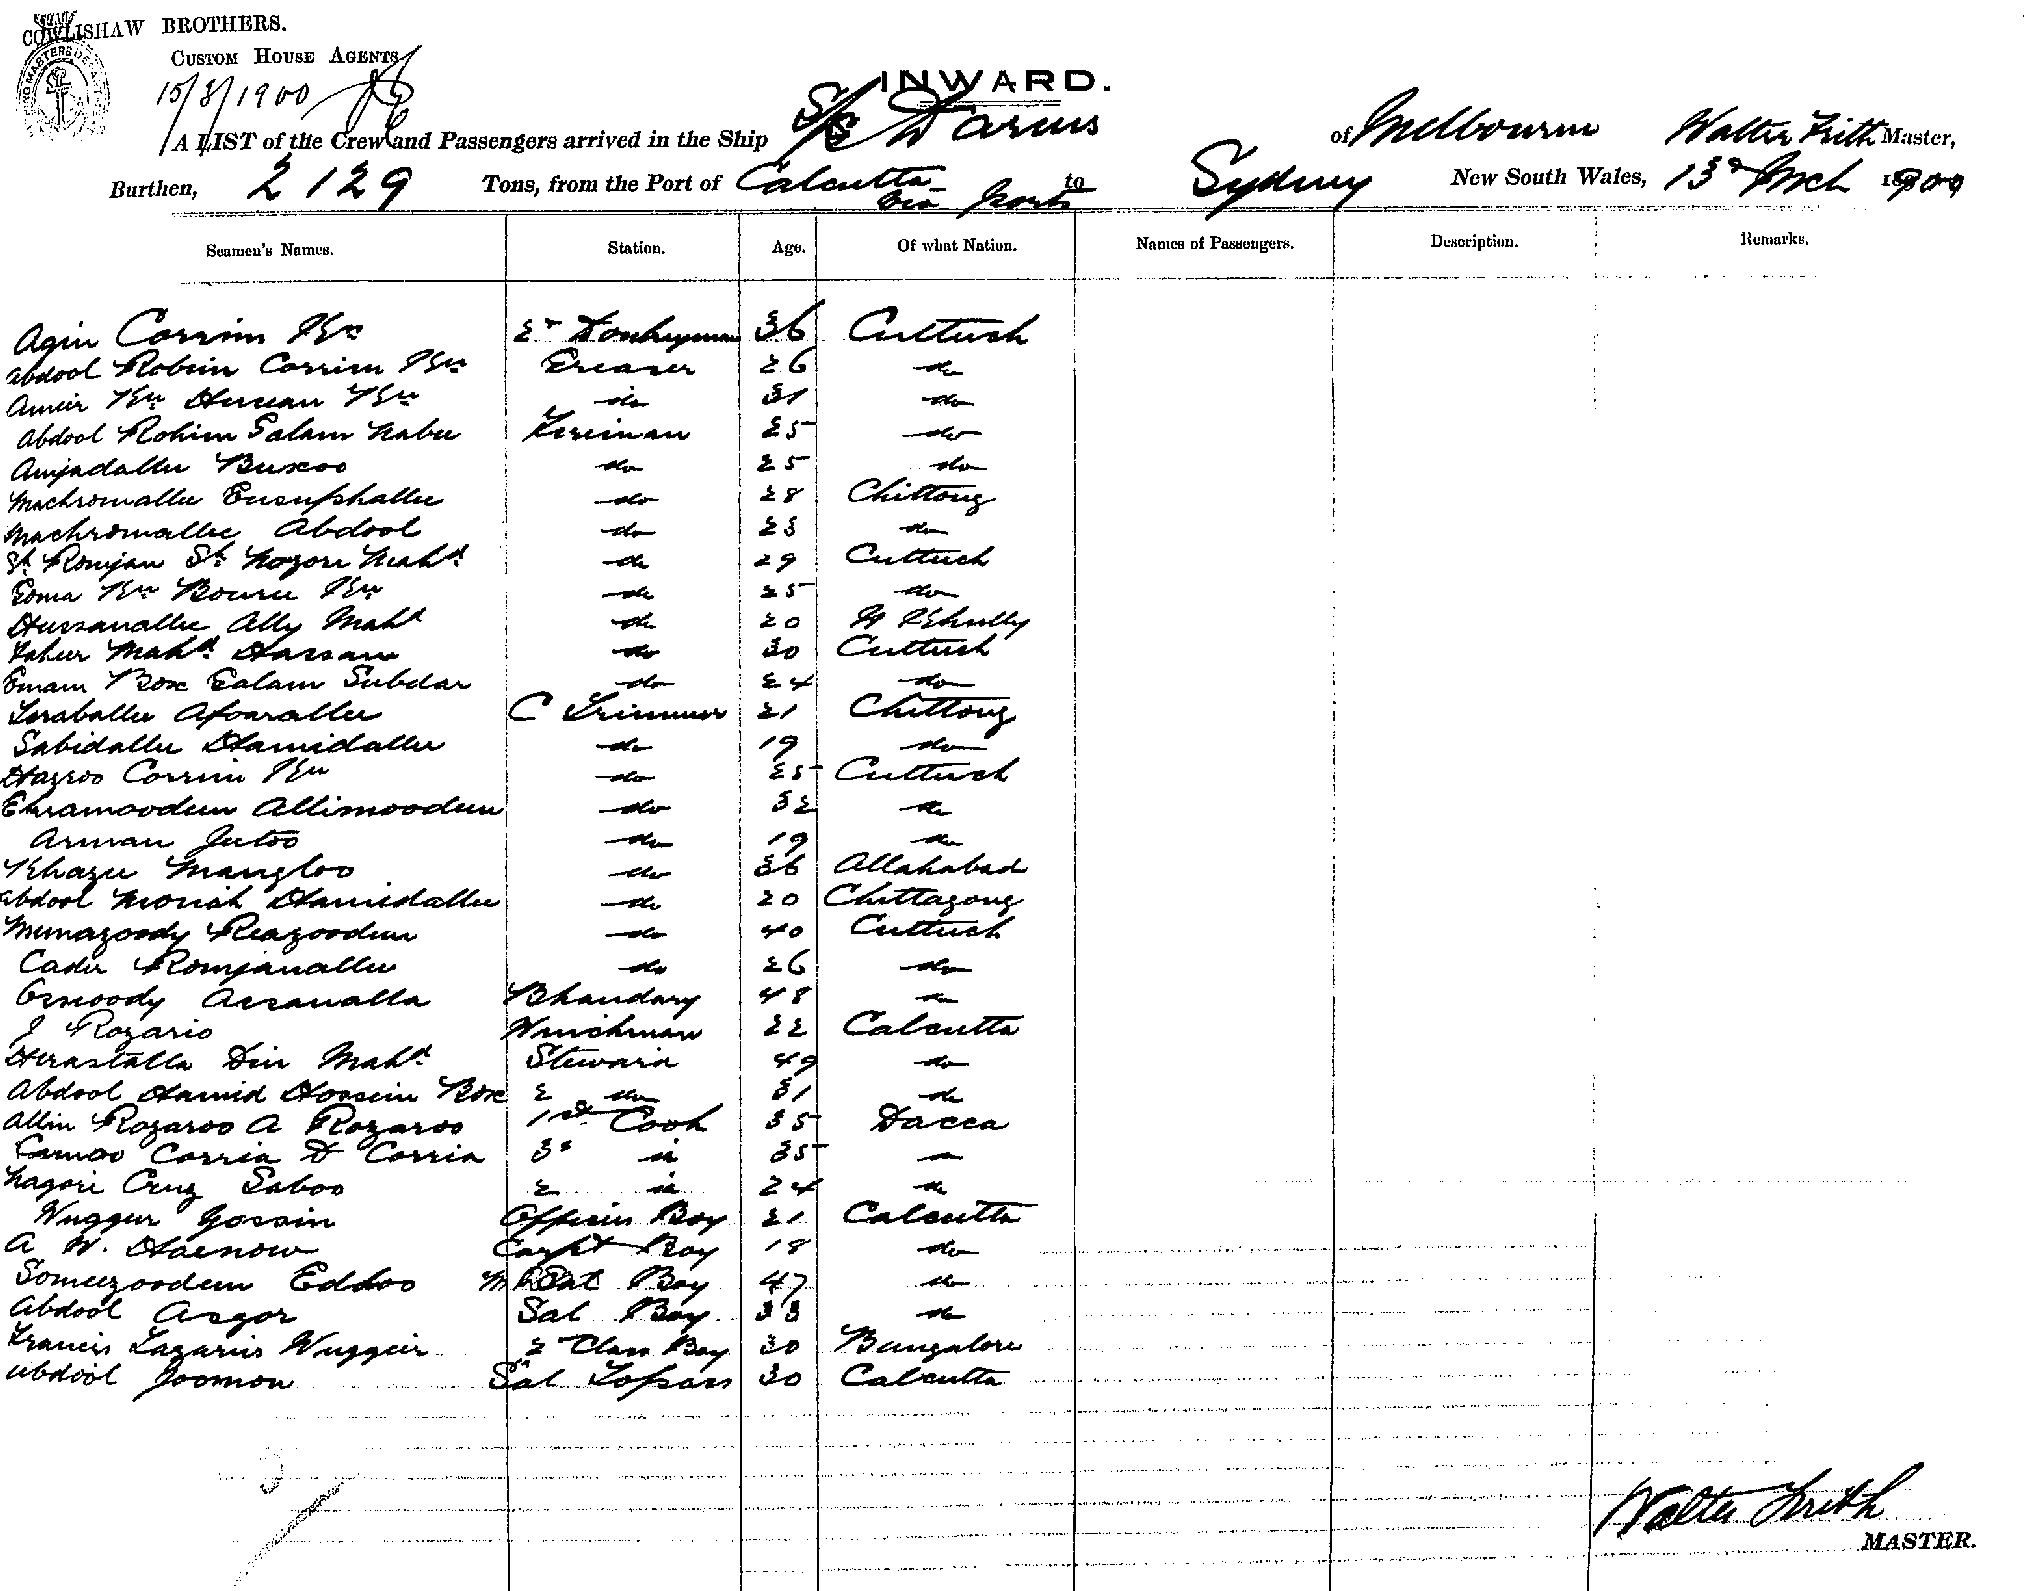 COWLISHAW BROTHERS.
CUSTOM HOUSE AGENTS
15/3/1900
INWARD.
A LIST of the Crew and Passengers arrived in the Ship S/S Darius of Melbourne Walter Frith Master,
Burthen, 2129 Tons, from the Port of Calcutta via Ports to Sydney New South Wales, 13th Mch 1900
Seamen's Names. Station. Age. Of what Nation. Names of Passengers. Description. Remarks.
Agin Corrim Kn 2nd Donkeyman 36 Cuttuck
Abdool Robim Corrim Kn Greaser 26 do
Ameir Kn Hussan Kn do 31 do
Abdool Rohim Salam Nabee Fireman 25 do
Amjadallee Buxoo do 25 do
Machromallee Eusuphallee do 28 Chittong
Machromallee Abdool do 23 do
Sk Romjan Sk Nozore Mahd do 29 Cuttuck
Eoma Kn Bouree Kn do 25 do
Hussanallee Ally Mahd do 20
Fakeer Mahd Hassan do 30 Cuttuck
Emam Box Ealam Subdar do 24 do
Toraballee Afsarallee C Trimmer 21 Chittong
Sabidallee Hamidallee do 19 do
Hazroo Corrim Kn do 25 Cuttuck
Ekramoodeen Allimoodeen do 32 do
Arman Jeetoo do 19 do
Khazee Mangloo do 36 Allahabad
Abdool Moriah Hamidallee do 20 Chittagong
Munazoody Reazoodeen do 40 Cuttuck
Cader Romjanallee do 26 do
Osmoody Assanalla Bhandary 48 do
J Rozario Winchman 22 Calcutta
Herastalla Din Mahd Steward 49 do
Abdool Hamid Hossein Box 2 do 31 do
Allin Rozaroo A Rozaroo 1st Cook 35 Dacca
Corria D Corria 3rd do 35 do
Nagori Cruz Saboo 2 do 24 do
Wuggur Gossin Officers Boy 21 Calcutta
A W. Hoenow Capt Boy 18 do
Someezoodeen Eddoo Boy 47 do
Abdool Asgor Sal Boy 33 do
Francis Lazarius Wuggeir 2nd Class Boy 30 Bangalore
Abdool Joomon Sal Topass 30 Calcutta
Walter Frith
MASTER.